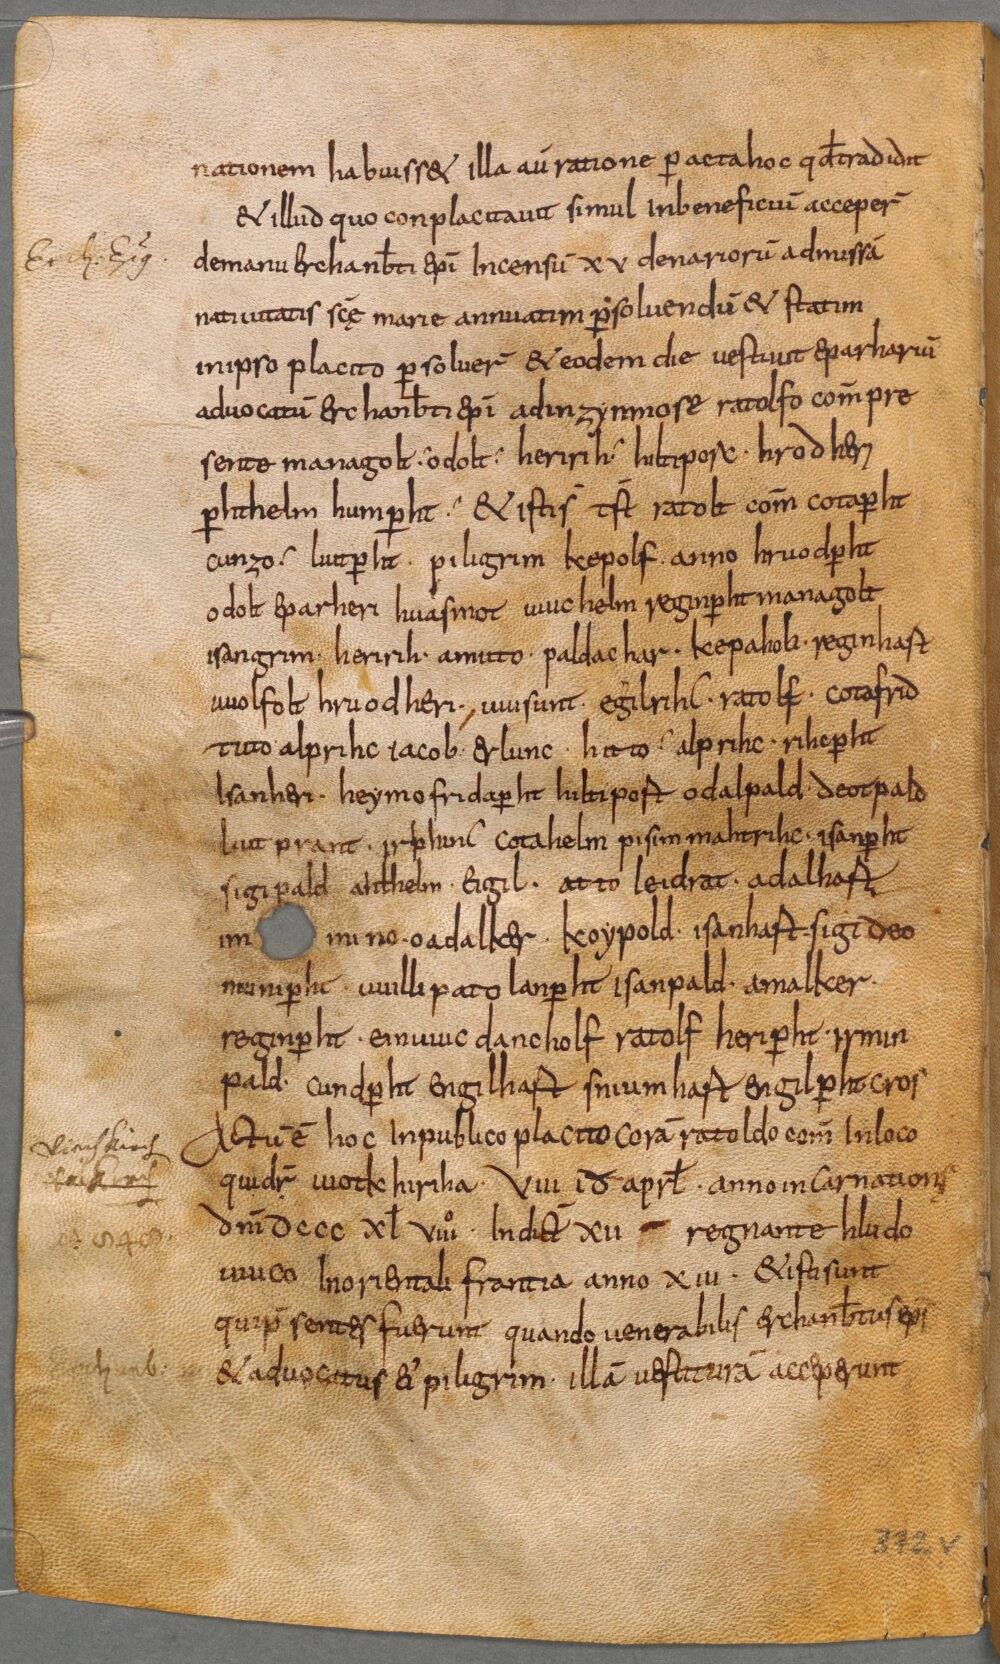 nationem habuiss& illa aū ratione p̄ acta hoc qđ tradidit
& illud quo conplacitauit simul Inbeneficiū acceper̄
Erch. Ep̄g.
demanu Erchanb̄ti epī Incensū xv denariorū admissā
natiuitatis scę marie annuatim p̄soluendū & statim
inipso placito p̄soluer̄ & eodem die uestiuit Eparhariū
aduocatū Erchanb̄ti epī adinzynmose ratolfo com̄ pre
sente managolt · odolt · heririh · hiltiport · hrodheri
p̄hthelm hump̄ht · & istis tst̄ ratolt com̄ cotap̄ht
cunzo · liutp̄ht · piligrim kepolf · anno hruodp̄ht
odolt eparheri huasmot uuichelm reginp̄ht managolt
isangrim · heririh · amuto · paldachar · kepaholt · reginhaft
uuolfolt hruodheri · uuisunt · egilrih · ratolf · cotafrid
tuto alprihc iacob · erlunc · hitto · alprihc · rihcp̄ht
Isanheri · heymo fridap̄ht hiltiport odalpald · deotpald
liutprant · cotahelm pisin mahtrihc · isanp̄ht
sigipald althelm · Eigil · atto leidrat · adalhaft
im mino · oadalker · koypold · isanhaft · sigideo
munip̄ht · uuillipato lanp̄ht isanpald · amalker ·
reginp̄ht · einuuic dancholf ratolf herip̄ht · irmin
pald · cundp̄ht engilhaft sniumhaft engilp̄ht cros
Actū ē hoc Inpublico placito corā ratoldo com̄ Inloco
quidr̄ uuotkhiriha · VIII id̄ apr̄l · anno incarnationis
dn̄i dccc xl VIIII · Indict̄ XII regnante hludo
uuico Inorientali frantia anno XIII · & isti sunt
quip̄sentes fuerunt quando uenerabilis erchanb̄tus epī
& aduocatus ei piligrim · illā uestiturā acceperunt
372 v